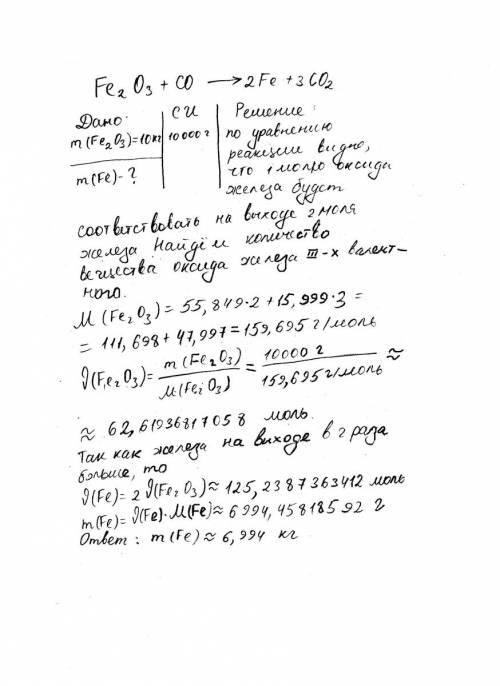 Fe₂O₃ + CO ⟶ 2Fe + 3CO₂
Дано: СИ Решение:
m(Fe₂O₃)=10кг 10000 г по уравнению
реакции видно,
m(Fe)-? что 1 молю оксида
железа будет
соответствовать на выходе 2 моля
железа. Найдём количество
вещества оксида железа III-х валент-
ного.
M(Fe₂O₃) = 55,849·2 + 15,999·3 =
= 111,698 + 47,997 = 159,695 г/моль
ϑ(Fe₂O₃) = m(Fe₂O₃)/M(Fe₂O₃) = 10000 г/159,695 г/моль ≈
≈ 62,6193681705 8 моль.
Так как железа на выходе в 2 раза
больше, то
ϑ(Fe) = 2 ϑ(Fe₂O₃) ≈ 125,2387363412 моль
m(Fe) = ϑ(Fe)·M(Fe) ≈ 6994,45818592 г
Ответ: m(Fe) ≈ 6,994 кг